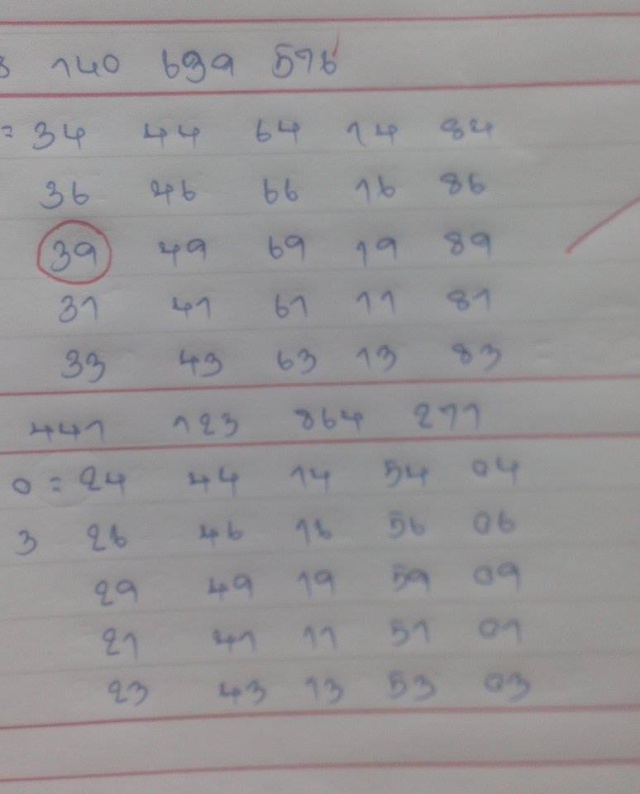 140 699 576
= 34 44 64 14 84
36 46 66 16 86
39 49 69 19 89
31 41 61 11 81
33 43 63 13 83
441 123 864 277
0 = 24 44 14 54 04
3 26 46 16 56 06
29 49 19 59 09
21 41 11 51 01
23 43 13 53 03